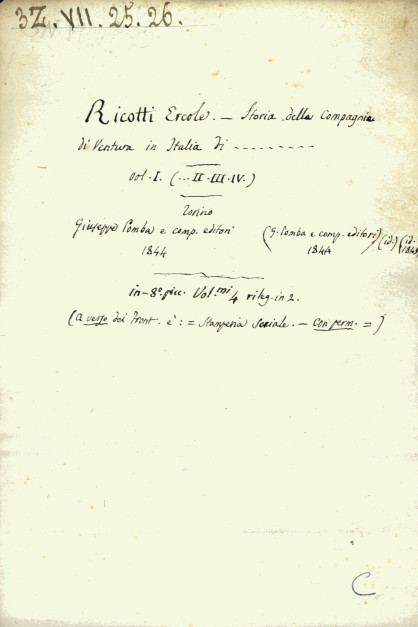 3Z. VII. 25. 26.
Ricotti Ercole. — Storia della Compagnia
di Ventura in Italia di ---------
Vol. I. (... II. III. IV.)
Torino
Giuseppe Pomba e comp. editori (G. Pomba e comp. editori) (id.) (id.
1844 1844 1845
in-8° picc. Vol.mi 4 rileg. in 2.
(a verso del Front. è: = Stamperia Sociale. — Con perm. =)
C